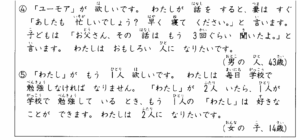 ④ 「ユーモア」が 欲しいです。 わたしが 話を すると、妻は すぐ
「あしたも 忙しいでしょう? 早く 寝て ください。」と 言います。
子どもは 「お父さん、その 話は もう 3回ぐらい 聞いたよ。」と
言います。 わたしは おもしろい 人に なりたいです。
(男の 人、43歳)
⑤ 「わたし」が もう 1人 欲しいです。 わたしは 毎日 学校で
勉強しなければ なりません。 「わたし」が 2人 いたら、1人が
学校で 勉強して いる とき、もう 1人の 「わたし」は 好きな
ことが できます。 わたしは 2人に なりたいです。
(女の 子、14歳)